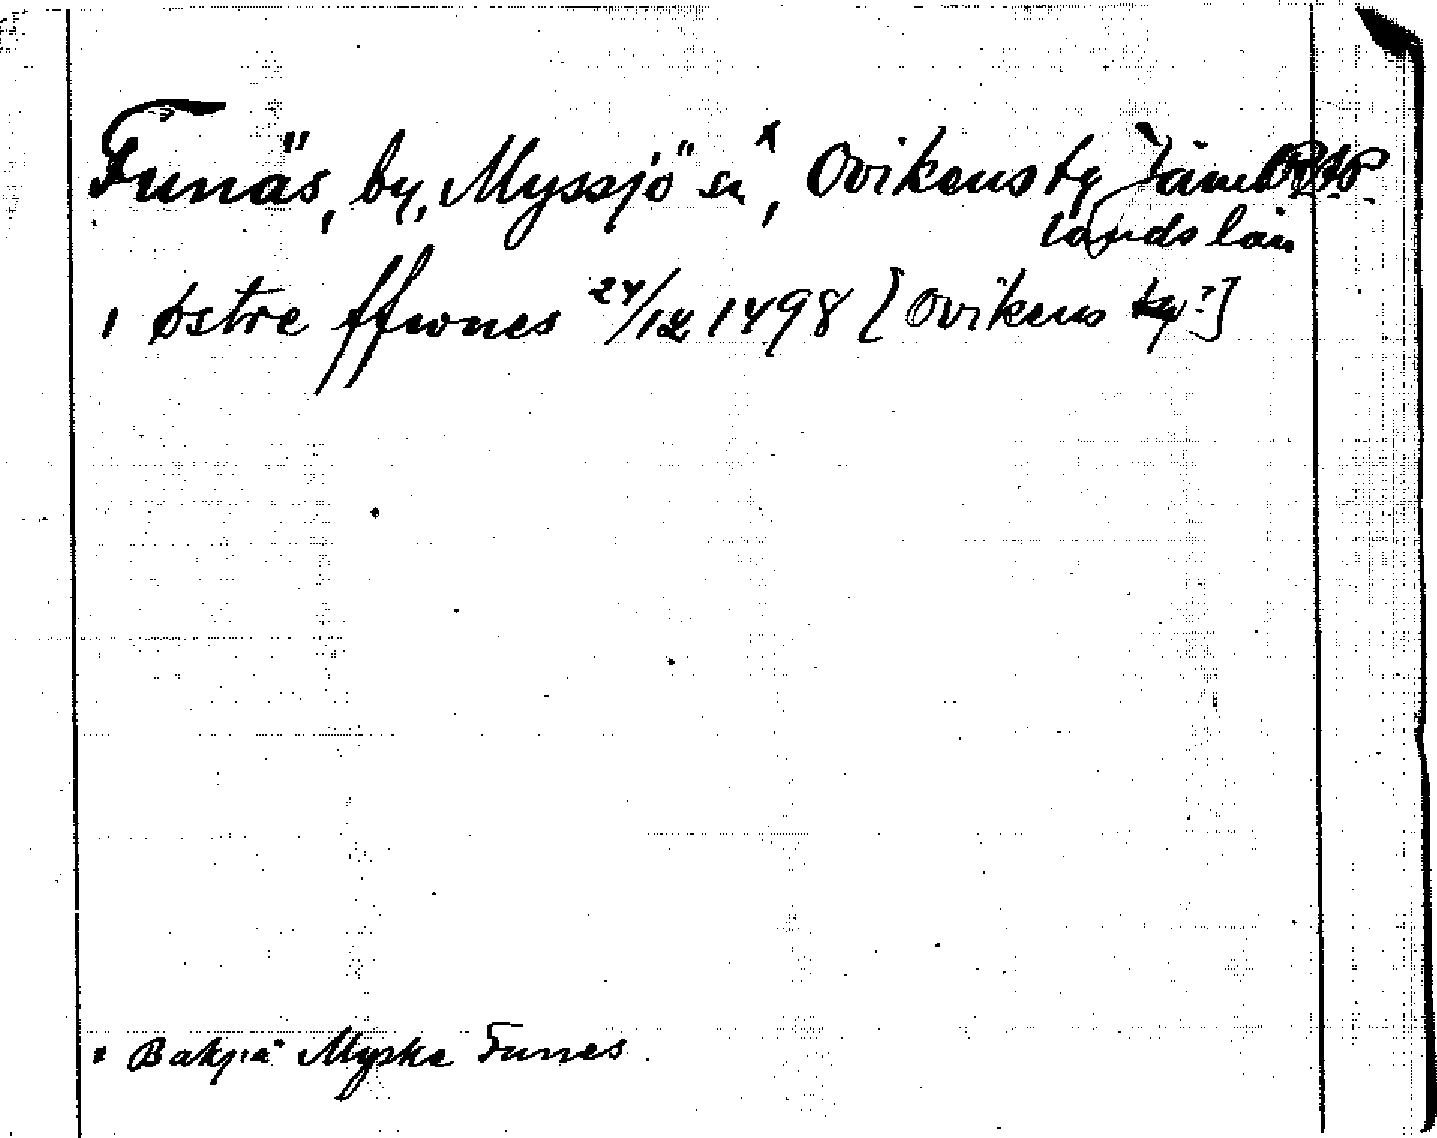 Funäs, by, Myssjö sn x, Ovikens tg Jämt
lands län
i østre ffwnes 24/12 1498 [Ovikens tg?]
x Bakpå Myske Funnes